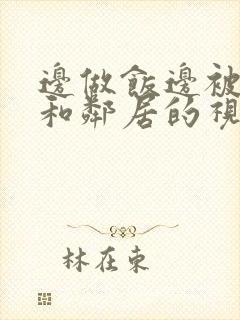 邊做飯邊被
和鄰居的視
林在東